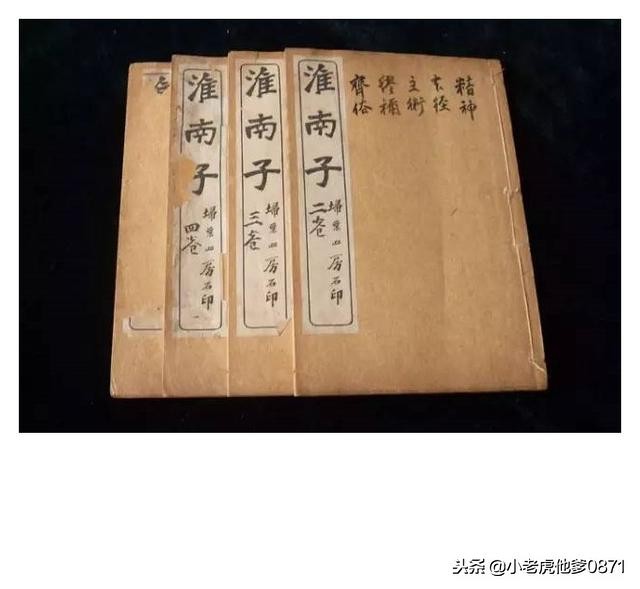 精神
本经
主術
繆稱
齊俗
淮南子
埽葉山房石印
二卷
淮南子
埽葉山房石印
三卷
淮南子
埽葉山房石印
四卷
头条 @小老虎他爹0871